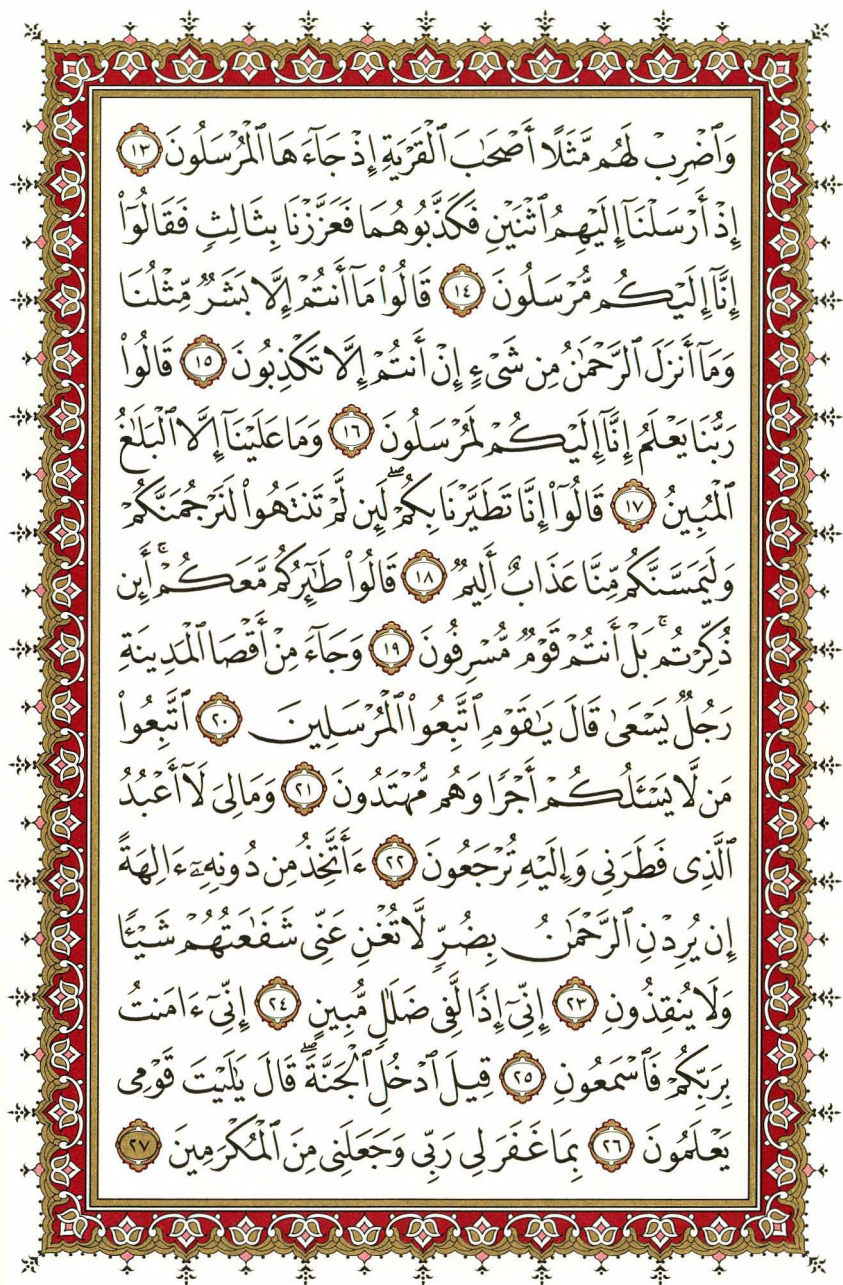 وَٱضْرِبْ لَهُم مَّثَلًا أَصْحَٰبَ ٱلْقَرْيَةِ إِذْ جَآءَهَا ٱلْمُرْسَلُونَ ١٣
إِذْ أَرْسَلْنَآ إِلَيْهِمُ ٱثْنَيْنِ فَكَذَّبُوهُمَا فَعَزَّزْنَا بِثَالِثٍ فَقَالُوٓا۟
إِنَّآ إِلَيْكُم مُّرْسَلُونَ ١٤ قَالُوا۟ مَآ أَنتُمْ إِلَّا بَشَرٌ مِّثْلُنَا
وَمَآ أَنزَلَ ٱلرَّحْمَٰنُ مِن شَىْءٍ إِنْ أَنتُمْ إِلَّا تَكْذِبُونَ ١٥ قَالُوا۟
رَبُّنَا يَعْلَمُ إِنَّآ إِلَيْكُمْ لَمُرْسَلُونَ ١٦ وَمَا عَلَيْنَآ إِلَّا ٱلْبَلَٰغُ
ٱلْمُبِينُ ١٧ قَالُوٓا۟ إِنَّا تَطَيَّرْنَا بِكُمْ ۖ لَئِن لَّمْ تَنتَهُوا۟ لَنَرْجُمَنَّكُمْ
وَلَيَمَسَّنَّكُم مِّنَّا عَذَابٌ أَلِيمٌ ١٨ قَالُوا۟ طَٰٓئِرُكُم مَّعَكُمْ ۚ أَئِن
ذُكِّرْتُم ۚ بَلْ أَنتُمْ قَوْمٌ مُّسْرِفُونَ ١٩ وَجَآءَ مِنْ أَقْصَا ٱلْمَدِينَةِ
رَجُلٌ يَسْعَىٰ قَالَ يَٰقَوْمِ ٱتَّبِعُوا۟ ٱلْمُرْسَلِينَ ٢٠ ٱتَّبِعُوا۟
مَن لَّا يَسْـَٔلُكُمْ أَجْرًا وَهُم مُّهْتَدُونَ ٢١ وَمَا لِىَ لَآ أَعْبُدُ
ٱلَّذِى فَطَرَنِى وَإِلَيْهِ تُرْجَعُونَ ٢٢ ءَأَتَّخِذُ مِن دُونِهِۦٓ ءَالِهَةً
إِن يُرِدْنِ ٱلرَّحْمَٰنُ بِضُرٍّ لَّا تُغْنِ عَنِّى شَفَٰعَتُهُمْ شَيْـًٔا
وَلَا يُنقِذُونِ ٢٣ إِنِّىٓ إِذًا لَّفِى ضَلَٰلٍ مُّبِينٍ ٢٤ إِنِّىٓ ءَامَنتُ
بِرَبِّكُمْ فَٱسْمَعُونِ ٢٥ قِيلَ ٱدْخُلِ ٱلْجَنَّةَ ۖ قَالَ يَٰلَيْتَ قَوْمِى
يَعْلَمُونَ ٢٦ بِمَا غَفَرَ لِى رَبِّى وَجَعَلَنِى مِنَ ٱلْمُكْرَمِينَ ٢٧